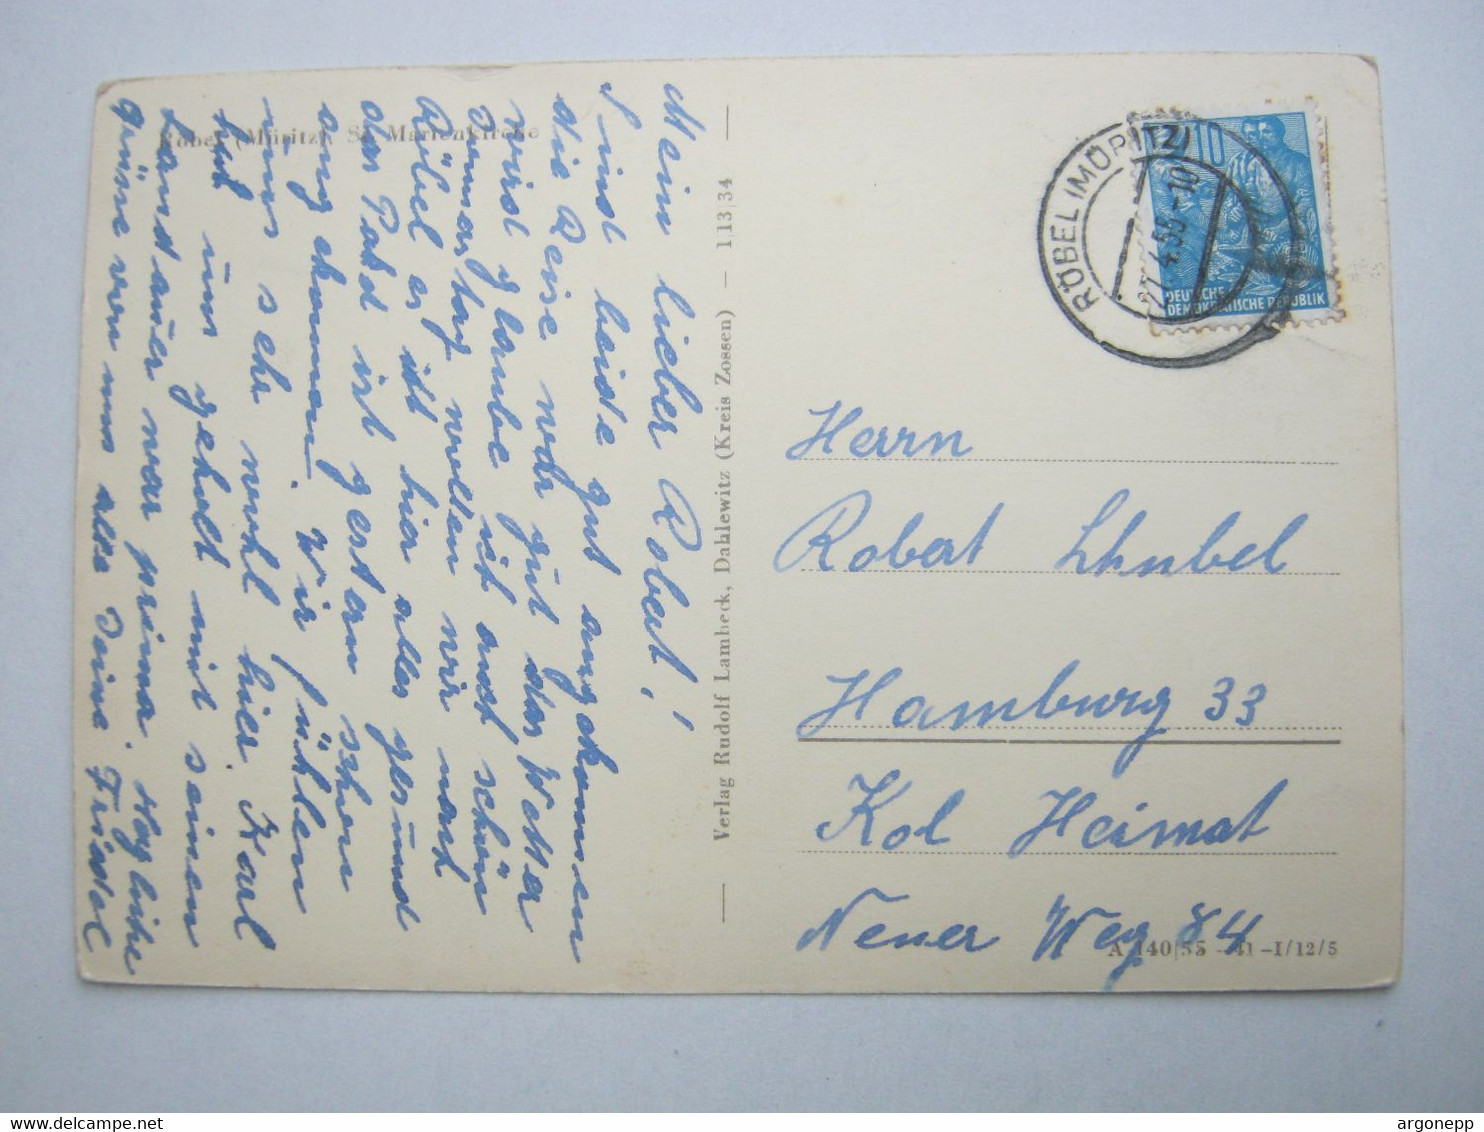 Röbel (Müritz), St. Marienkirche
Mein lieber Robert!
Sind beide gut angekommen
die Reise war gut das Wetter
wird glaube ich auch schön
Donnerstag wollen wir nach
Röbel es ist hier alles gesund
das Paket ist gestern schon
angekommen. Wir fühlen
uns sehr wohl hier. Karl
hat uns geholt mit seinen
Landauer war prima. Herzliche
Grüsse von uns alle Deine Friedel
Verlag Rudolf Lambeck, Dahlewitz (Kreis Zossen) — 1|13|34
RÖBEL (MÜRITZ)
27.4.55-10
10
DEUTSCHE
DEMOKRATISCHE REPUBLIK
Herrn
Robert
Hamburg 33
Kol Heimat
Neuer Weg 84
A 140|55 -41-I/12/5
argonepp
www.delcampe.net